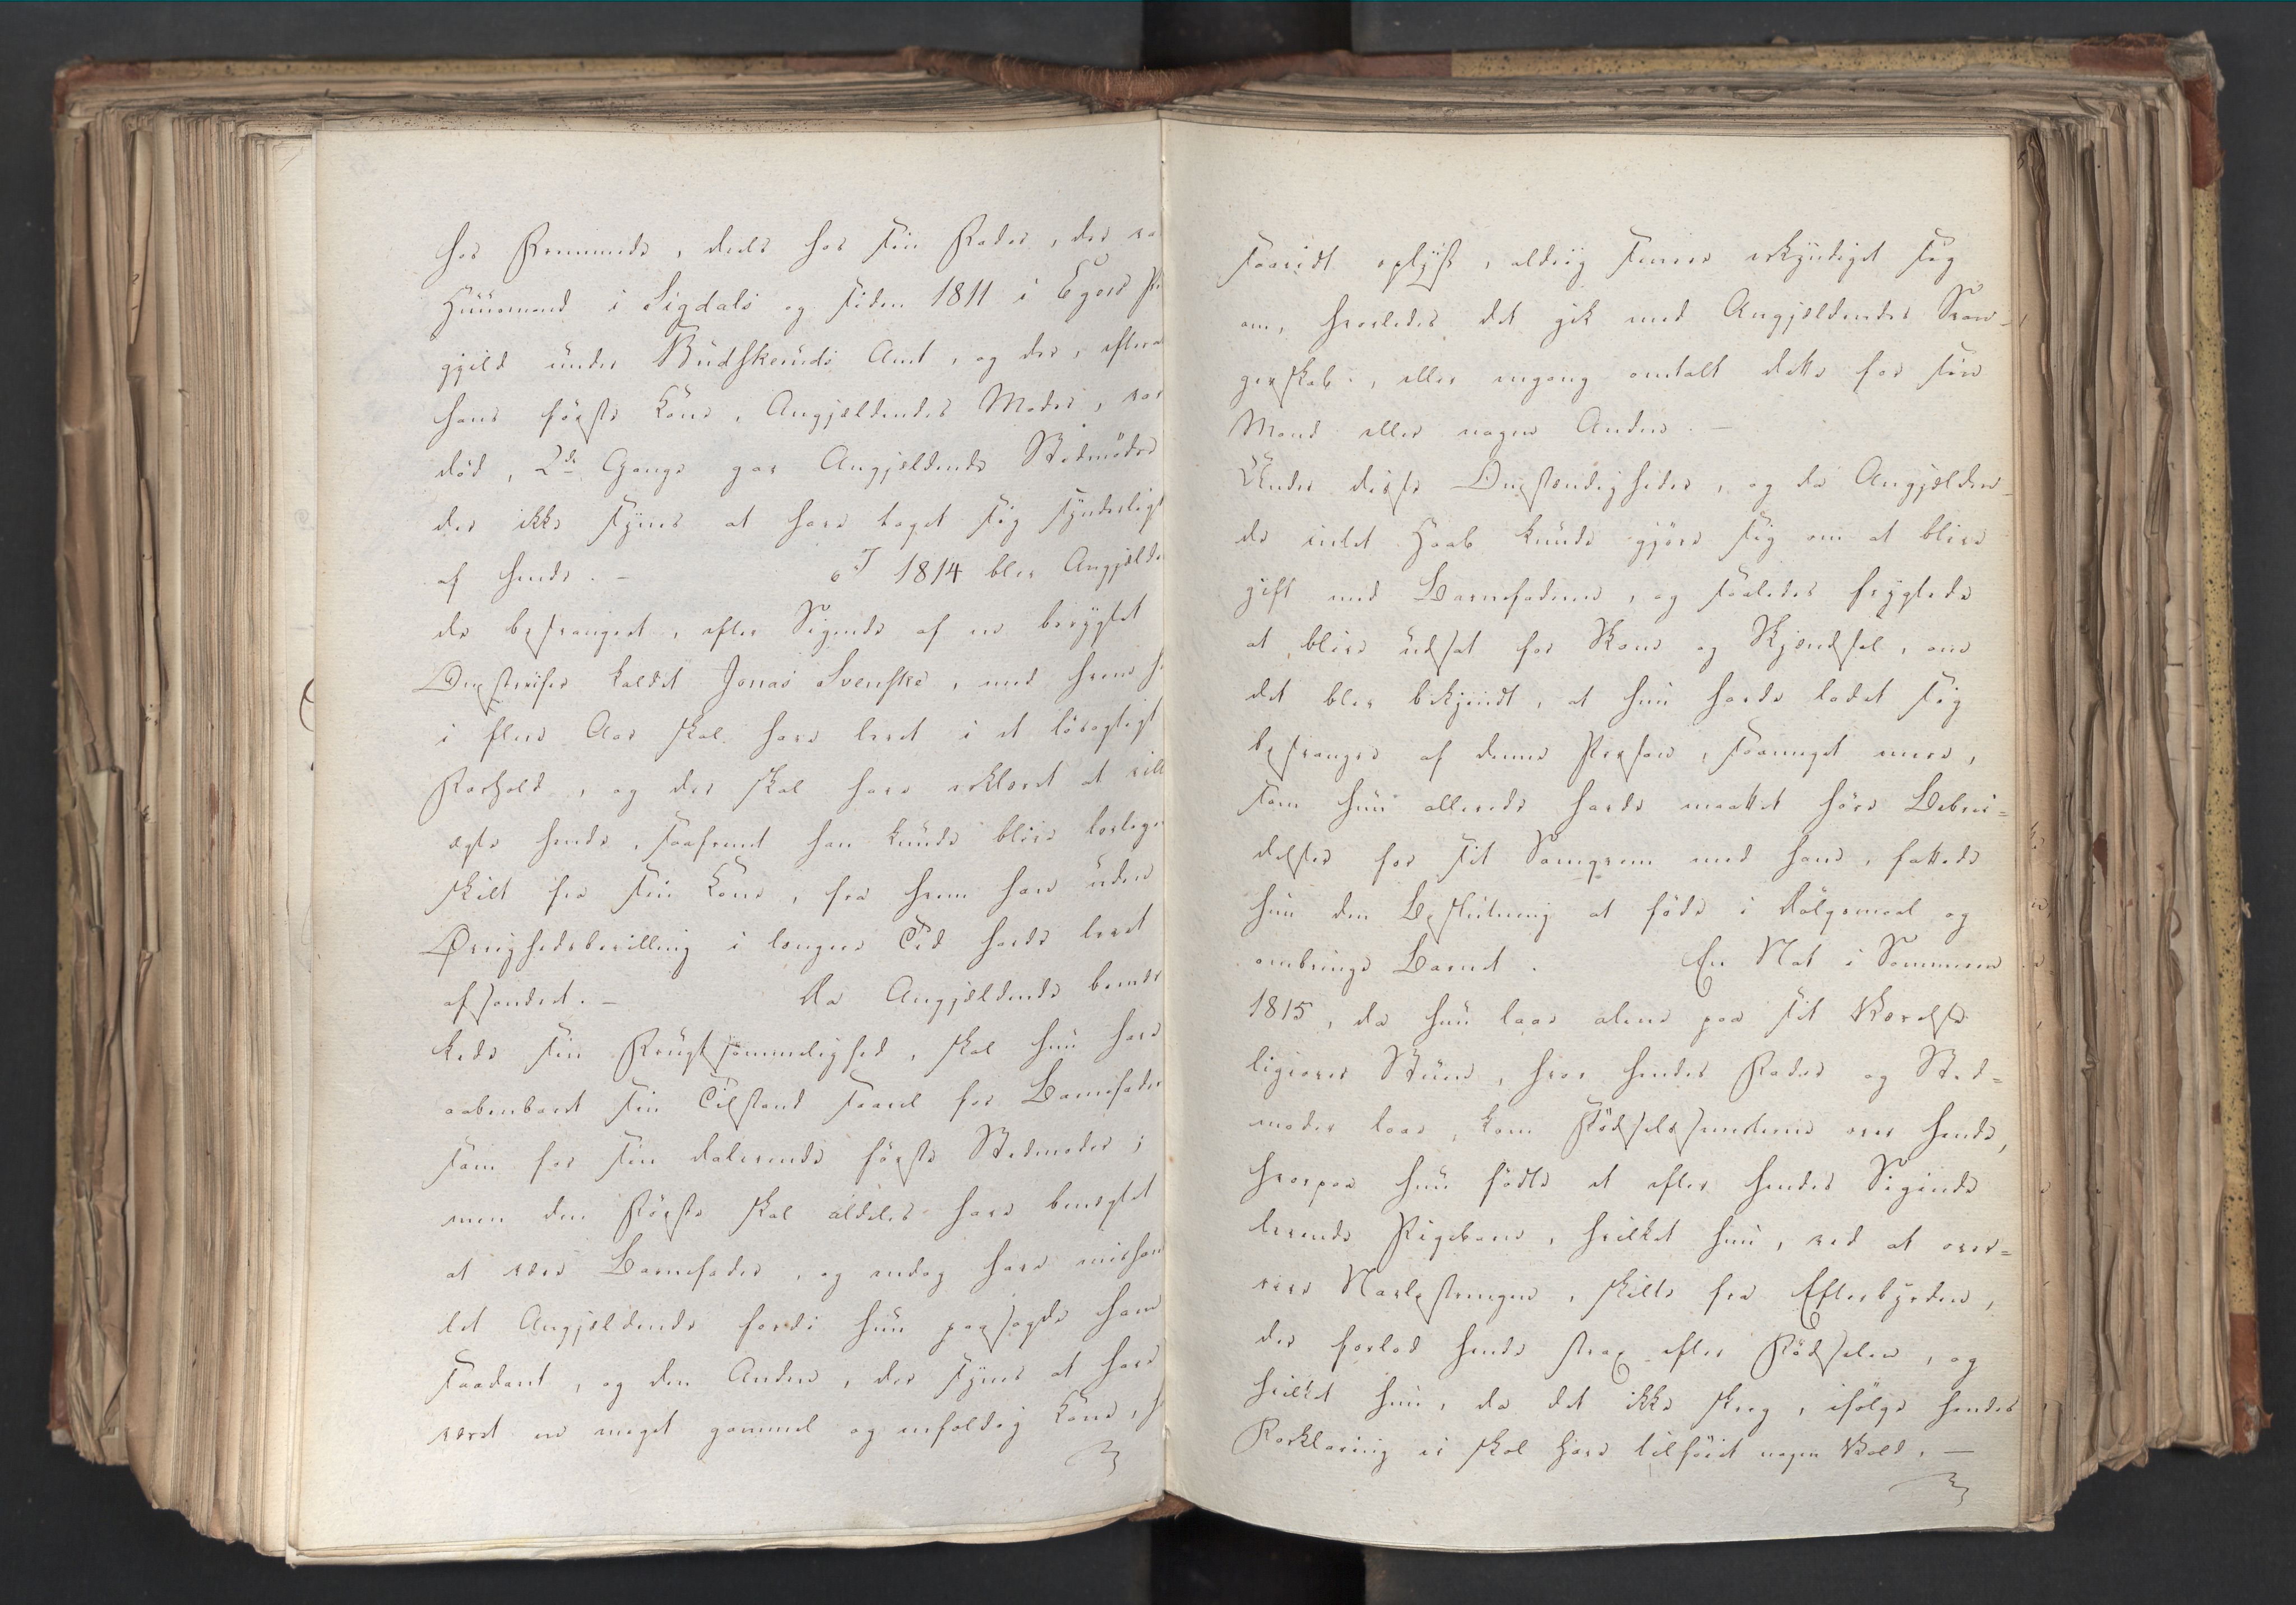 hos Fremmede, deels hos sin Fader, der va
Huusmand i Sigdals og siden 1811 i Egers Pr
gjeld under Budskeruds Amt, og der, eftera
hans første Kone, Angjældendes Moder, var
död, 2de Gange gav Angjældende Stedmödre
der ikke synes at have taget sig synderligt
af hende. – I 1814 blev Angjælde
de besvangret, efter Sigende af en berygtet
Omstreifer kaldet Jonas Svenske, med hvem h
i flere Aar skal have levet i et lösagtigt
Forhold, og der skal have erklæret at vill
ægte hende, saafremt han kunde blive lovlige
skilt fra sin Kone, fra hvem han uden
Øvrighedsbevilling i længere Tid havde levet
afsondret. – Da Angjældende bemær
kede sin Frugtsommelighed, skal hun have
aabenbaret sin Tilstand saavel for Barnefader
som for sin daværende förste Stedmoder;
men den Förste skal aldeles have benegtet
at være Barnefader, og endog have mishan
let Angjældende fordi hun paasagde ham
saadant, og den Anden, der synes at have
været en meget gammel og enfoldig Kone, h
saavidt oplyst, aldrig senere erkyndiget sig
om, hvorledes det gik med Angjældendes Svan-
gerskab, eller engang omtalt dette for sin
Mand eller nogen Anden. –
Under disse Omstændigheder, og da Angjælden-
de intet Haab kunde gjöre sig om at blive
gift med Barnefaderen, og saaledes frygtede
at blive udsat for Skam og Skjendsel, om
det blev bekjendt, at hun havde ladet sig
besvangre af denne Person, saameget mere,
som hun allerede havde maattet höre Bebrei-
delser for sit Samqvem med ham, fattede
hun den Beslutning at föde i Dölgsmaal og
ombringe Barnet. En Nat i Sommeren
1815, da hun laae alene paa sit Værelse
ligeover Stuen, hvor hendes Fader og Sted-
moder laae, kom Födselssmerterne over hende,
hvorpaa hun födte et efter hendes Sigende
levende Pigebarn, hvilket hun, ved at over-
rive Navlestrengen, skilte fra Efterbyrden,
der forlod hende strax efter Födselen, og
hvilket hun, da det ikke skreg, ifölge hendes
Forklaring ei skal have tilföiet nogen Vold. –